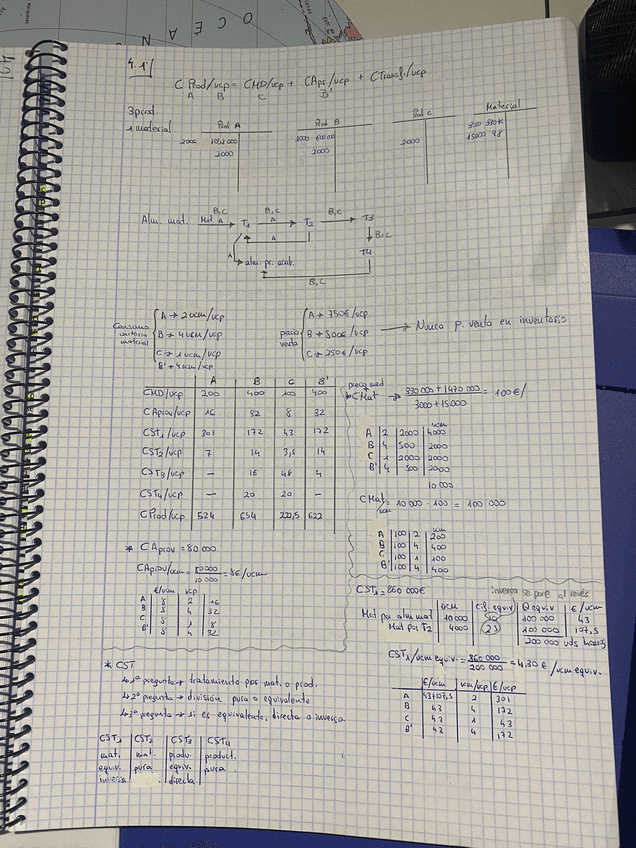 O C E
A
N
4.1)
C Prod/ucp = CMD/ucp + CApr/ucp + CTransf/ucp
A B C B'
3 prod.
1 material
Prod A
Prod B
Prod C
Material
2000
2000
1000
2000
2000
15000 98
Alm. mat. Mat. A B,C T1 B,C A T2 B,C T3
A B,C
A alm. pr. acab. T4
B,C
Consumo unitario material
A → 2 ucm/ucp
B → 4 ucm/ucp
C → 1 ucm/ucp
B' → 4 ucm/ucp
precio venta
A → 750€/ucp
B → 800€/ucp
C → 250€/ucp
→ Nunca p. venta en inventario
A B C B'
CMD/ucp 200 400 100 400
CAprov/ucp 16 32 8 32
CST1/ucp 301 172 43 172
CST2/ucp 7 14 3,5 14
CST3/ucp — 16 48 4
CST4/ucp — 20 20 —
CProd/ucp 524 654 222,5 622
precio med
* CMat → 330 000 + 1470 000 / 3000 + 15000 = 100 €/
ucm
A 2 2000 4000
B 4 500 2000
C 1 2000 2000
B' 4 500 2000
10 000
CMat = 10 000 · 100 = 100 000
ucm
ucm
A 100 2 200
B 100 4 400
C 100 1 100
B' 100 4 400
* CAprov = 80 000
CAprov/ucm = 80000 / 10000 = 8€/ucm
€/ucm ucp
A 8 2 16
B 8 4 32
C 8 1 8
B' 8 4 32
CST1 = 860 000€
inversa se pone al revés
ucm Cif. equiv Q equiv €/ucm
Mat por alm mat 10 000 100 000 43
Mat por T2 4000 25 100 000 107,5
200 000 uds homog
CST1/ucm equiv. = 860 000 / 200 000 = 4,30 € /ucm equiv.
€/ucm ucm/ucp €/ucp
A 43+107,5 2 301
B 43 4 172
C 43 1 43
B' 43 4 172
* CST
1ª pregunta → tratamiento por mat. o prod.
2ª pregunta → división pura o equivalente
3ª pregunta → si es equivalente, directa o inversa
CST1 CST2 CST3 CST4
mat. mat. produ. product.
equiv. pura equiv. pura
inversa directa